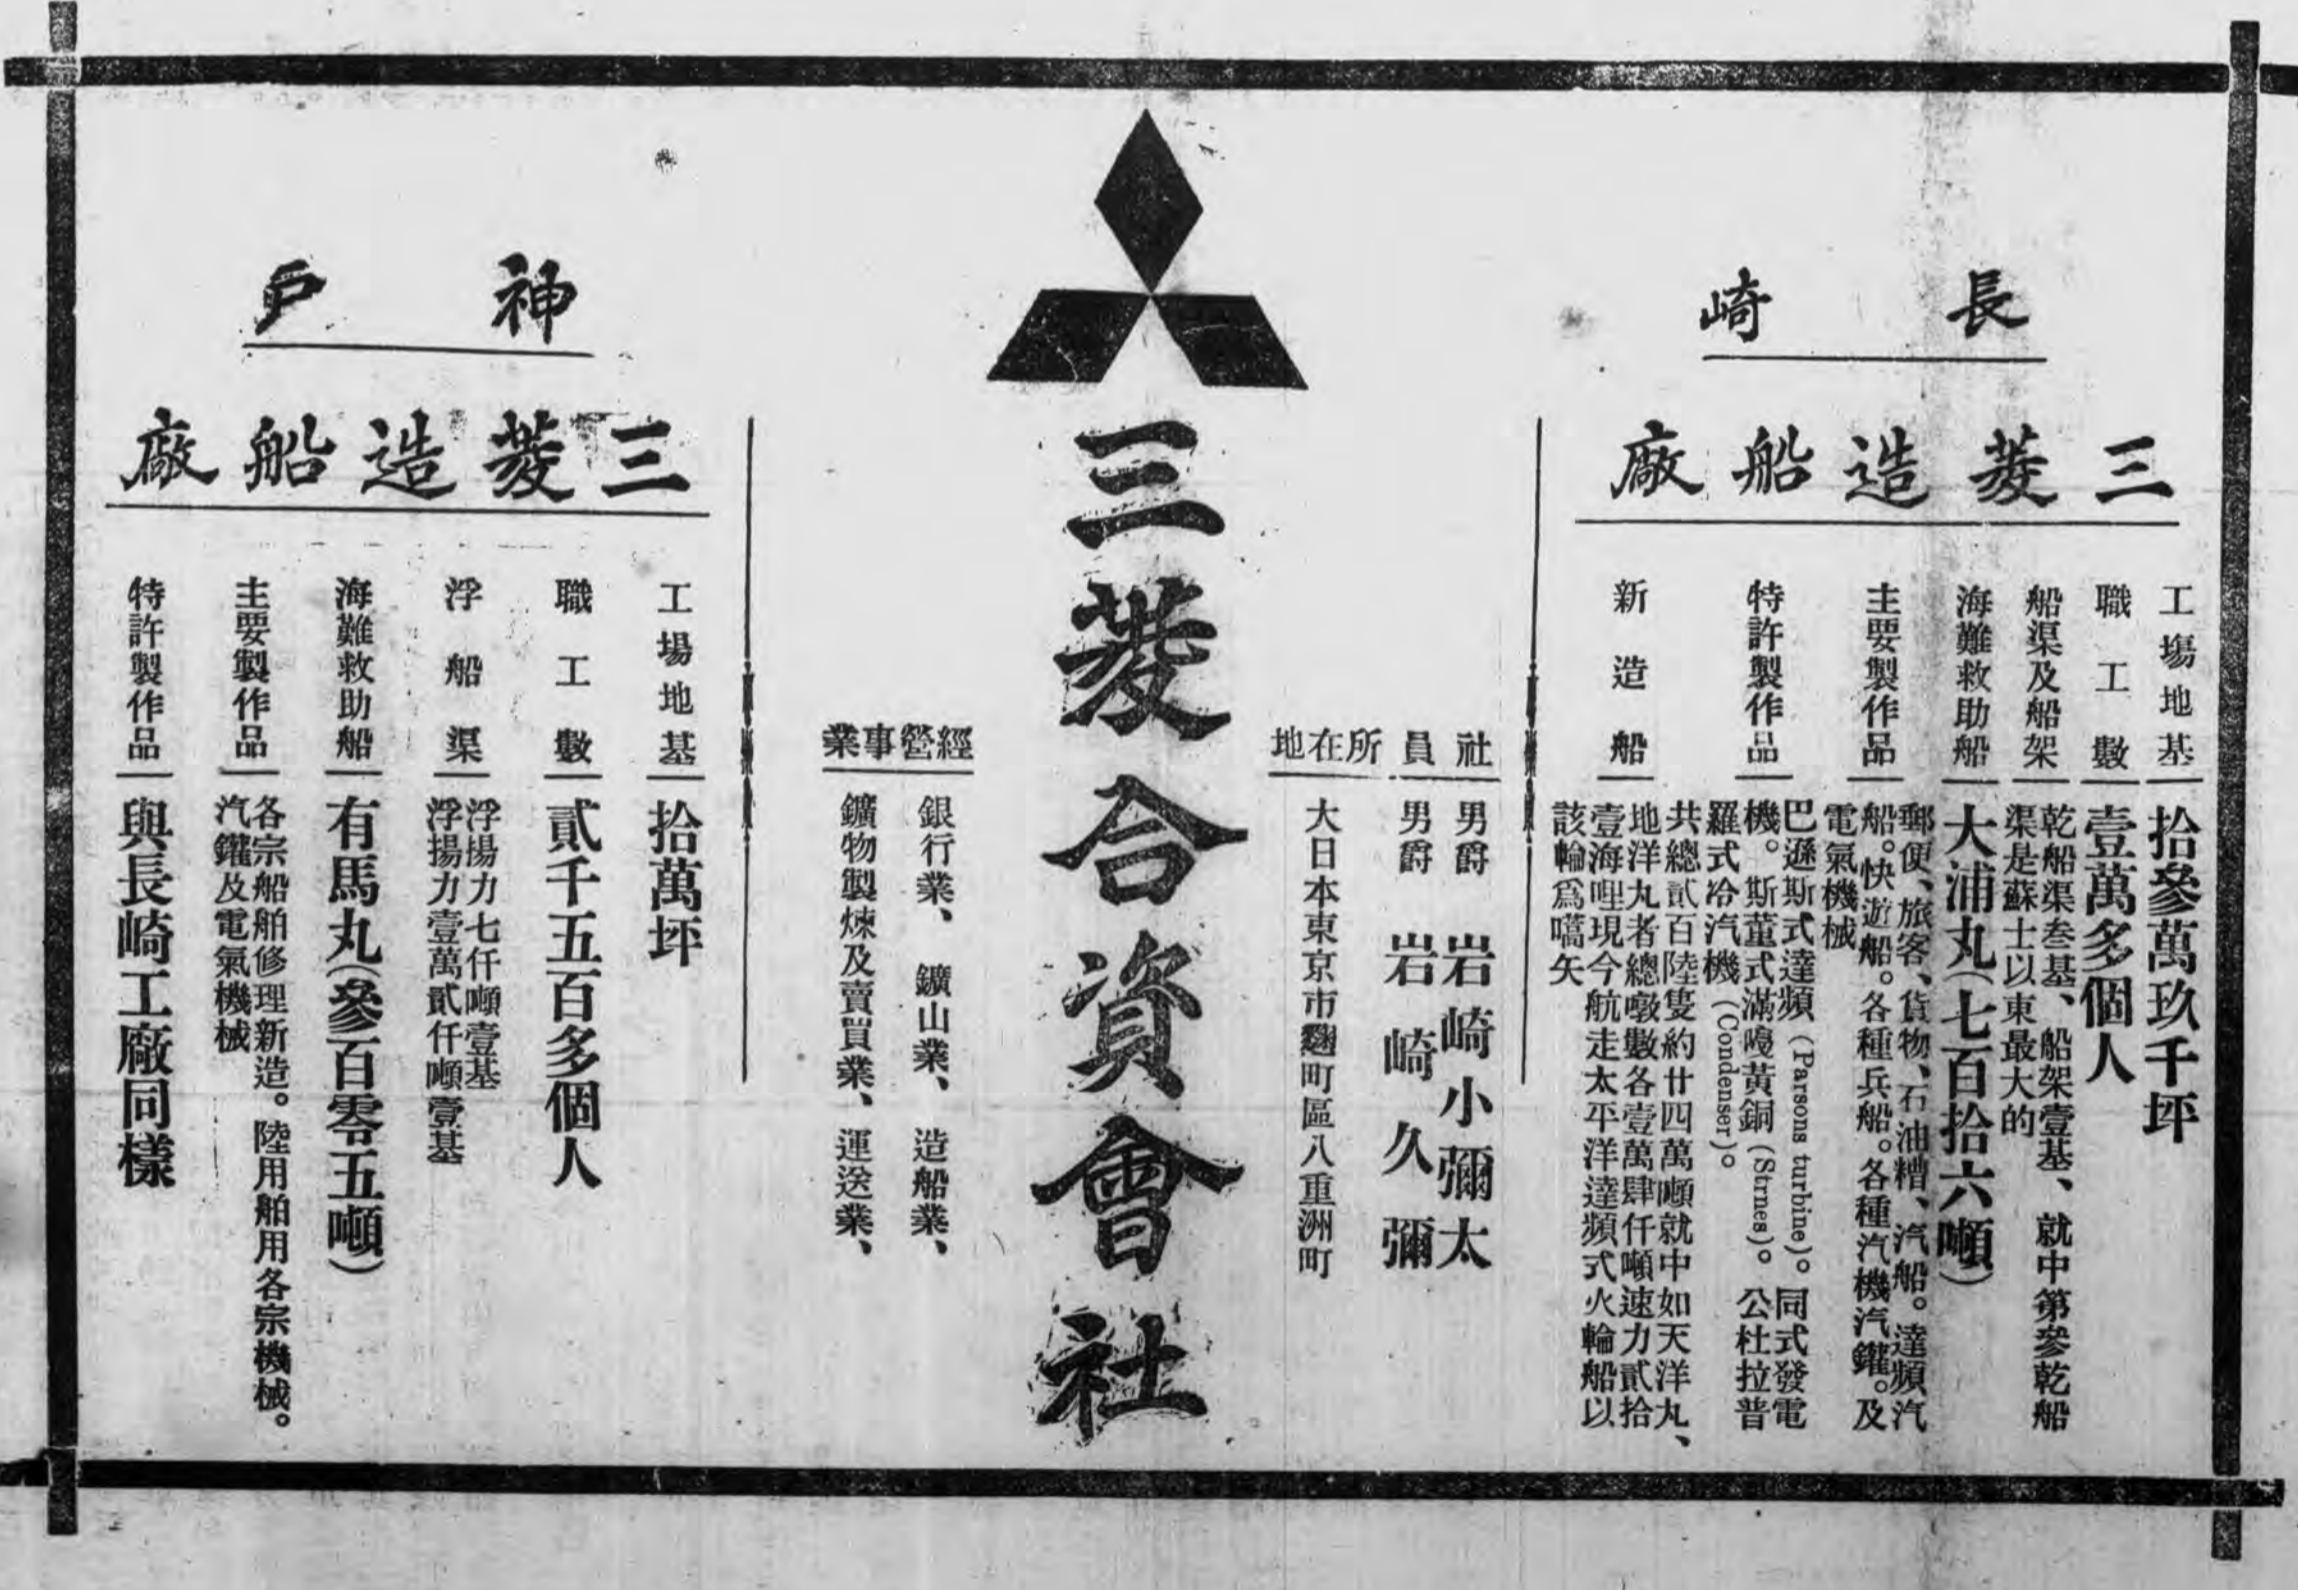 長崎
三菱造船廠
工場地基
拾參萬玖千坪
職工數
壹萬多個人
船渠及船架
乾船渠叁基、船架壹基、就中第參乾船
渠是蘇士以東最大的
海難救助船
大浦丸(七百拾六噸)
主要製作品
郵便、旅客、貨物、石油糟、汽船。達頻汽
船。快遊船。各種兵船。各種汽機汽鑵。及
電氣機械
特許製作品
巴遜斯式達頻(Parsons turbine)。同式發電
機。斯董式滿嘎黃銅(Strnes)。公杜拉普
羅式冷汽機(Condenser)。
新造船
共總貳百陸隻約廿四萬噸就中如天洋丸、
地洋丸者總噸數各壹萬肆仟噸速力貳拾
壹海哩現今航走太平洋達頻式火輪船以
該輪爲嚆矢
社員
男爵 岩崎小彌太
男爵 岩崎久彌
所在地
大日本東京市麴町區八重洲町
三菱合資會社
經營事業
銀行業、鑛山業、造船業、
鑛物製煉及賣買業、運送業、
神戶
三菱造船廠
工場地基
拾萬坪
職工數
貳千五百多個人
浮船渠
浮揚力七仟噸壹基
浮揚力壹萬貳仟噸壹基
海難救助船
有馬丸(參百零五噸)
主要製作品
各宗船舶修理新造。陸用舶用各宗機械。
汽鑵及電氣機械
特許製作品
與長崎工廠同樣